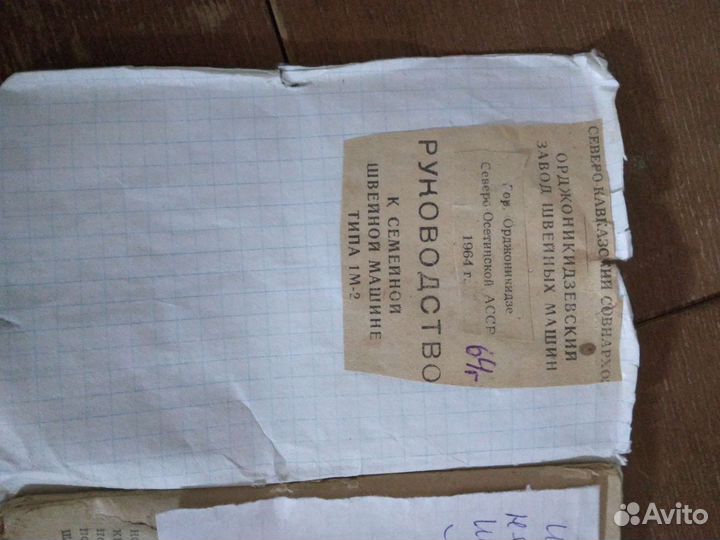 СЕВЕРО-КАВКАЗСКИЙ СОВНАРХО
ОРДЖОНИКИДЗЕВСКИЙ
ЗАВОД ШВЕЙНЫХ МАШИН
Гор. Орджоникидзе
Северо Осетинской АССР
1964 г.
64г
РУКОВОДСТВО
К СЕМЕЙНОЙ
ШВЕЙНОЙ МАШИНЕ
ТИПА 1М-2
Avito